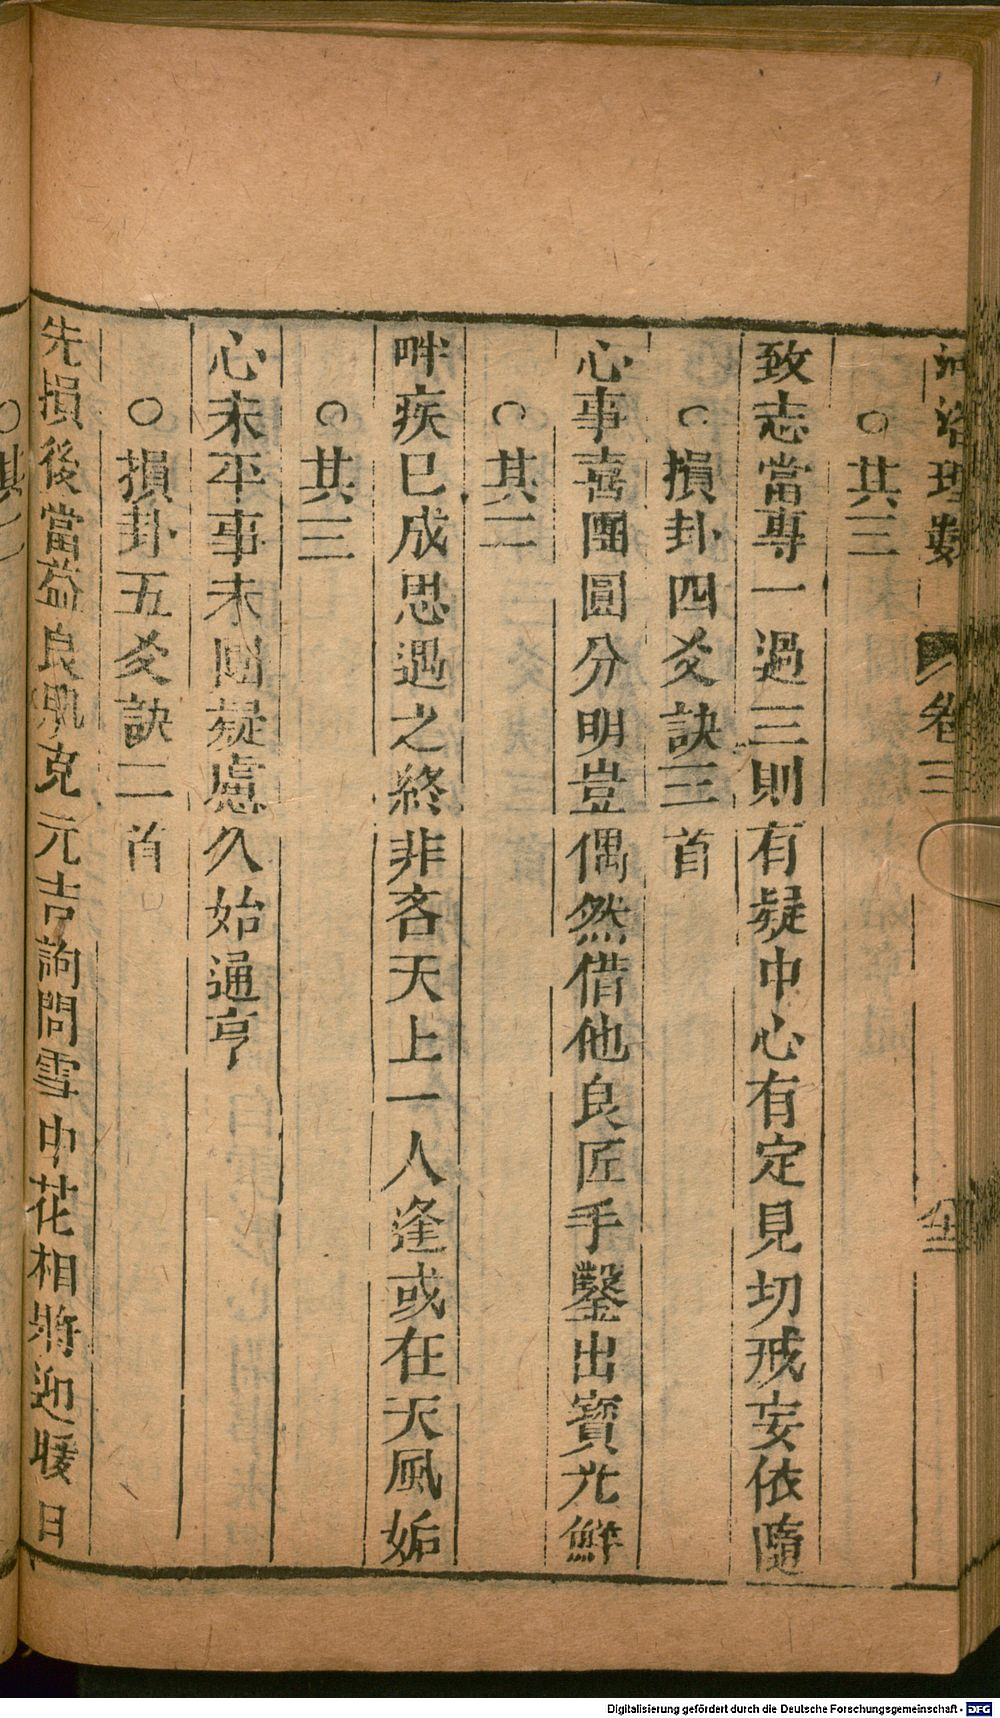 河洛理數 卷三
○其三
致志當專一過三則有疑中心有定見切戒妄依隨
○損卦四爻訣三首
心事喜團圓分明豈偶然借他良匠手鑿出寶光鮮
○其二
呼疾已成思遇之終非吝天上一人逢或在天風姤
○其三
心未平事未圓疑慮久始通亨
○損卦五爻訣二首
先損後當益良凧克元吉詢問雪中花相將迎暖日
○其二
Digitalisierung gefördert durch die Deutsche Forschungsgemeinschaft - DFG